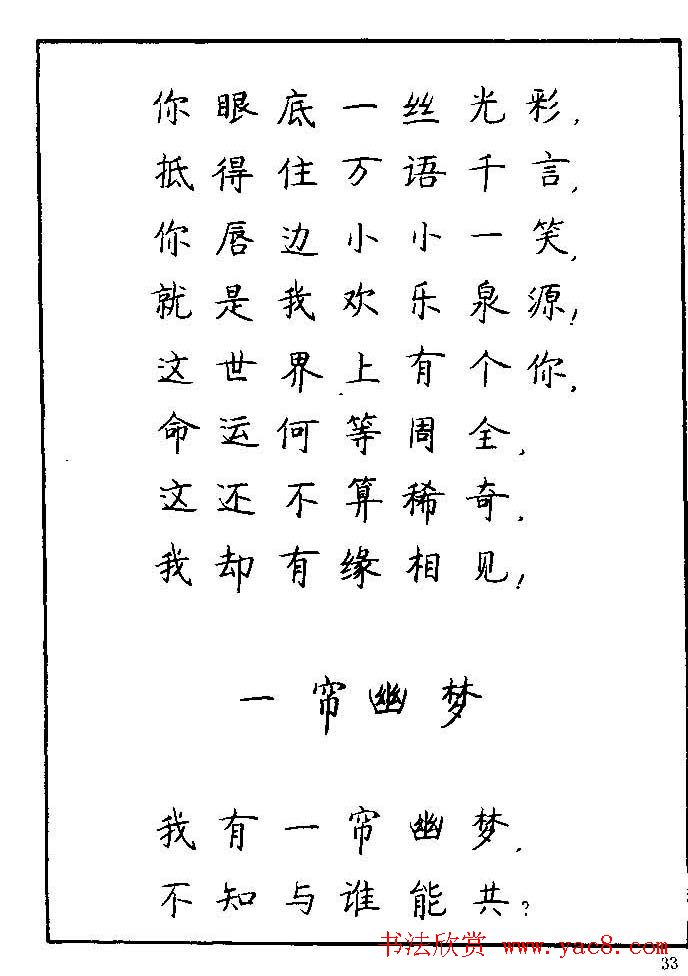 你眼底一丝光彩，
抵得住万语千言，
你唇边小小一笑，
就是我欢乐泉源！
这世界上有个你，
命运何等周全，
这还不算稀奇，
我却有缘相见！
一帘幽梦
我有一帘幽梦，
不知与谁能共？
书法欣赏 www.yac8.com
33